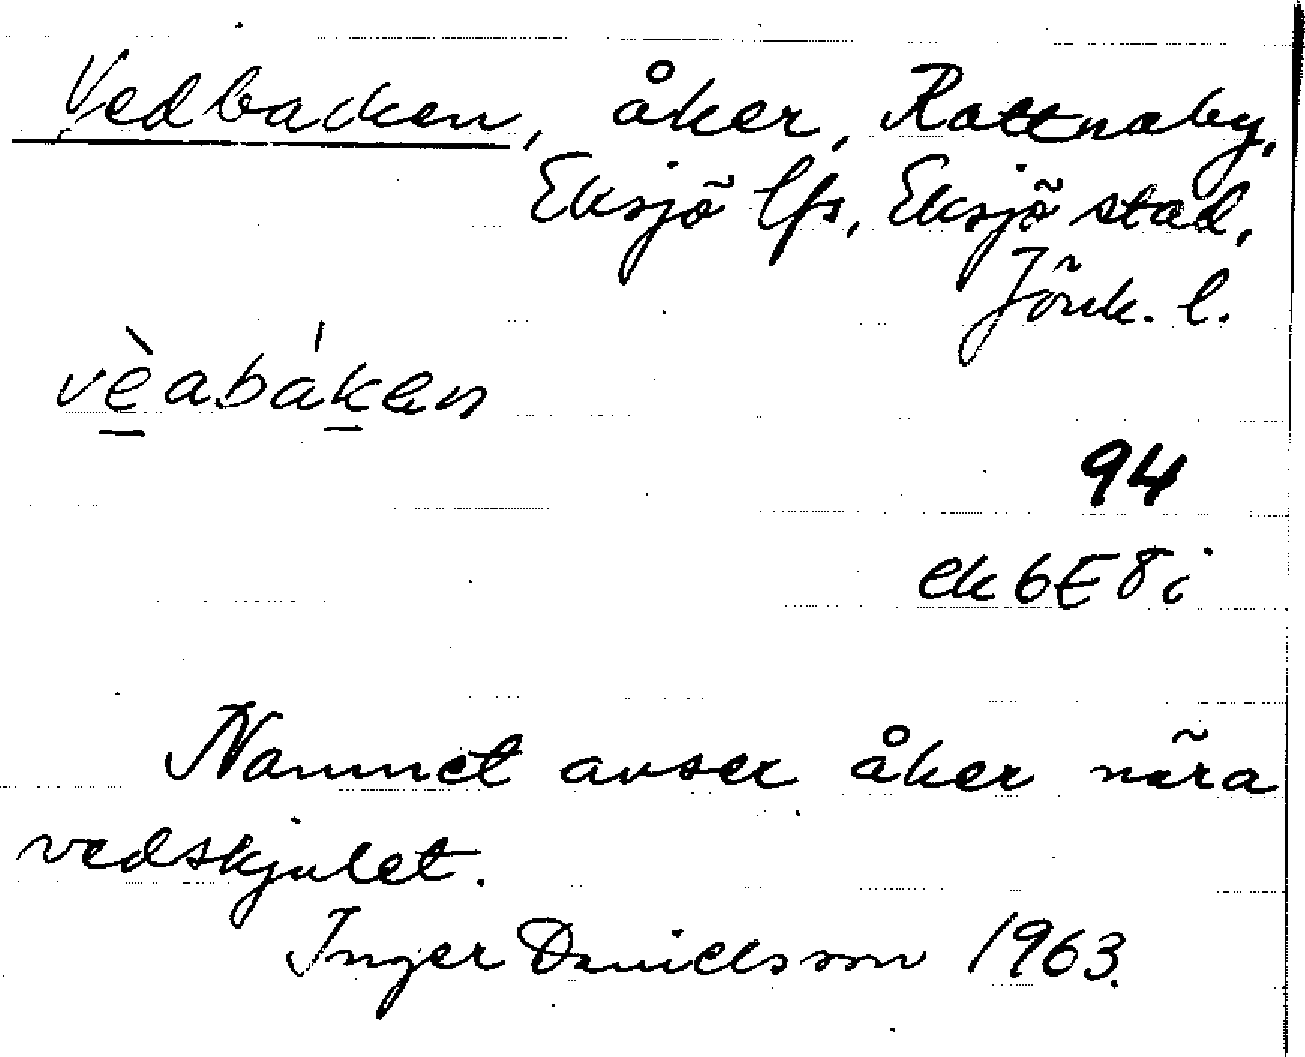 Vedbacken, åker, Rattnaby,
Eksjö lfs, Eksjö stad,
Jönk. l.
vèabáken
94
ek 6E8i
Namnet avser åker nära
vedskjulet.
Inger Danielsson 1963.